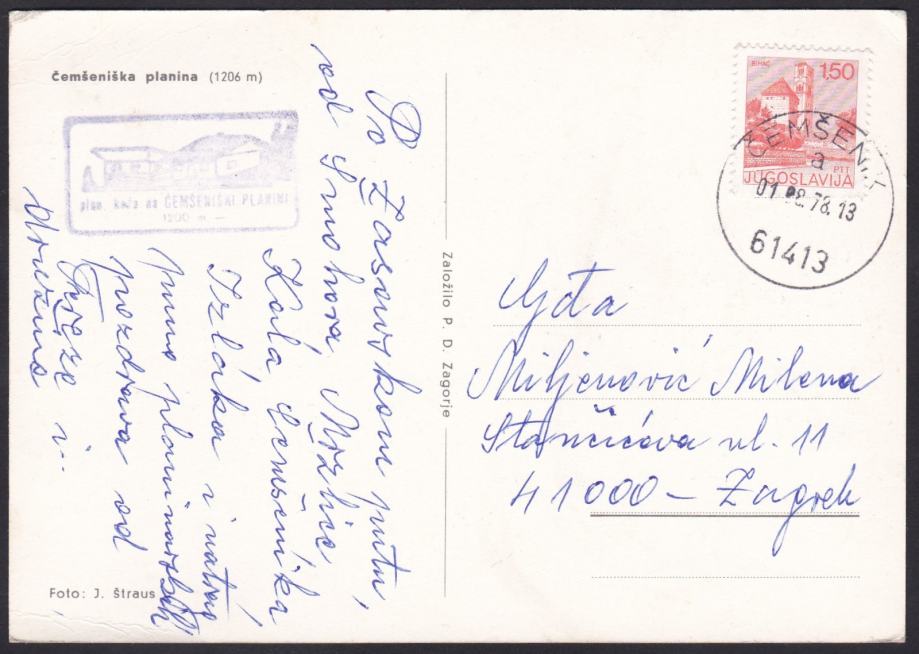 Čemšeniška planina (1206 m)
plan. koča na ČEMŠENIŠKI PLANINI
1200 m.-
Po Zasavskom putu,
od Smohora, Mrzlice
Kala, Čemšenika
Izlaka i natrag
puno planinarskih
pozdrava od
i...
družine
Foto: J. Štraus
Založilo P. D. Zagorje
BIHAĆ
1,50
PTT
JUGOSLAVIJA
ČEMŠENIK
a
78.13
61413
Gđa
Miljenović Milena
Stančićeva ul. 11
41000 - Zagreb